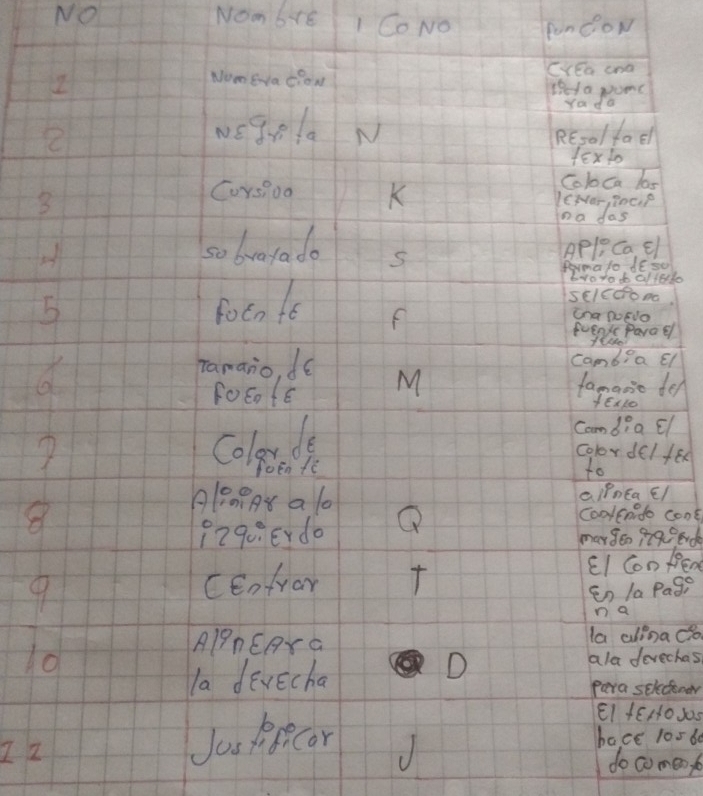 NO Nombre ICONO funcion
1 Numeracion Crea una
lista nume
rada
2 Negrita N Resalta el
texto
3 Cursiva K Coloca las
incli
nadas
4 subrayado S Aplica el
formato de su
al texto
5 fuente F
una nuevo
fuente para el
texto
6 Tamaño de M cambia el
fuente tamaño del
texto
7 Color de Cambia El
fuente color del tex
to
8 Aliniar a lo Q alinea El
izquierdo contenido con el
margen izquierdo
9 CEntrar T El
En la Pagi
na
10 AlinEAr a D la
la derecha a la derechas
para
11 Justificar J El texto Jus
hace los
documento